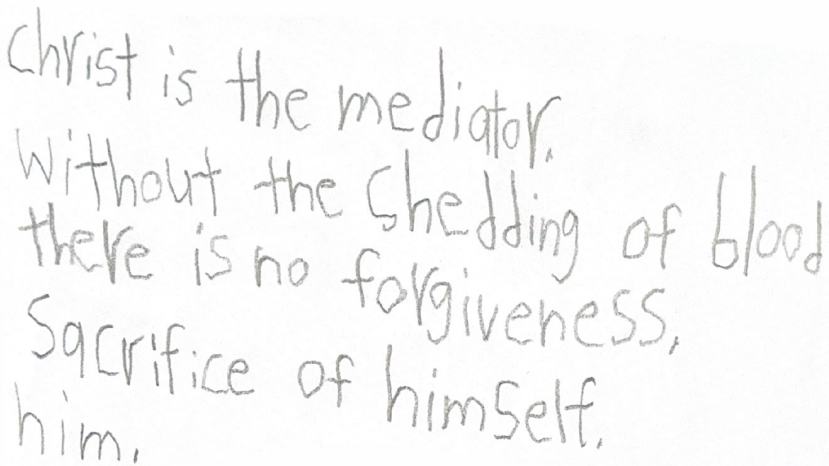 Christ is the mediator.
Without the Shedding of blood
there is no forgiveness.
Sacrifice of himself.
him.